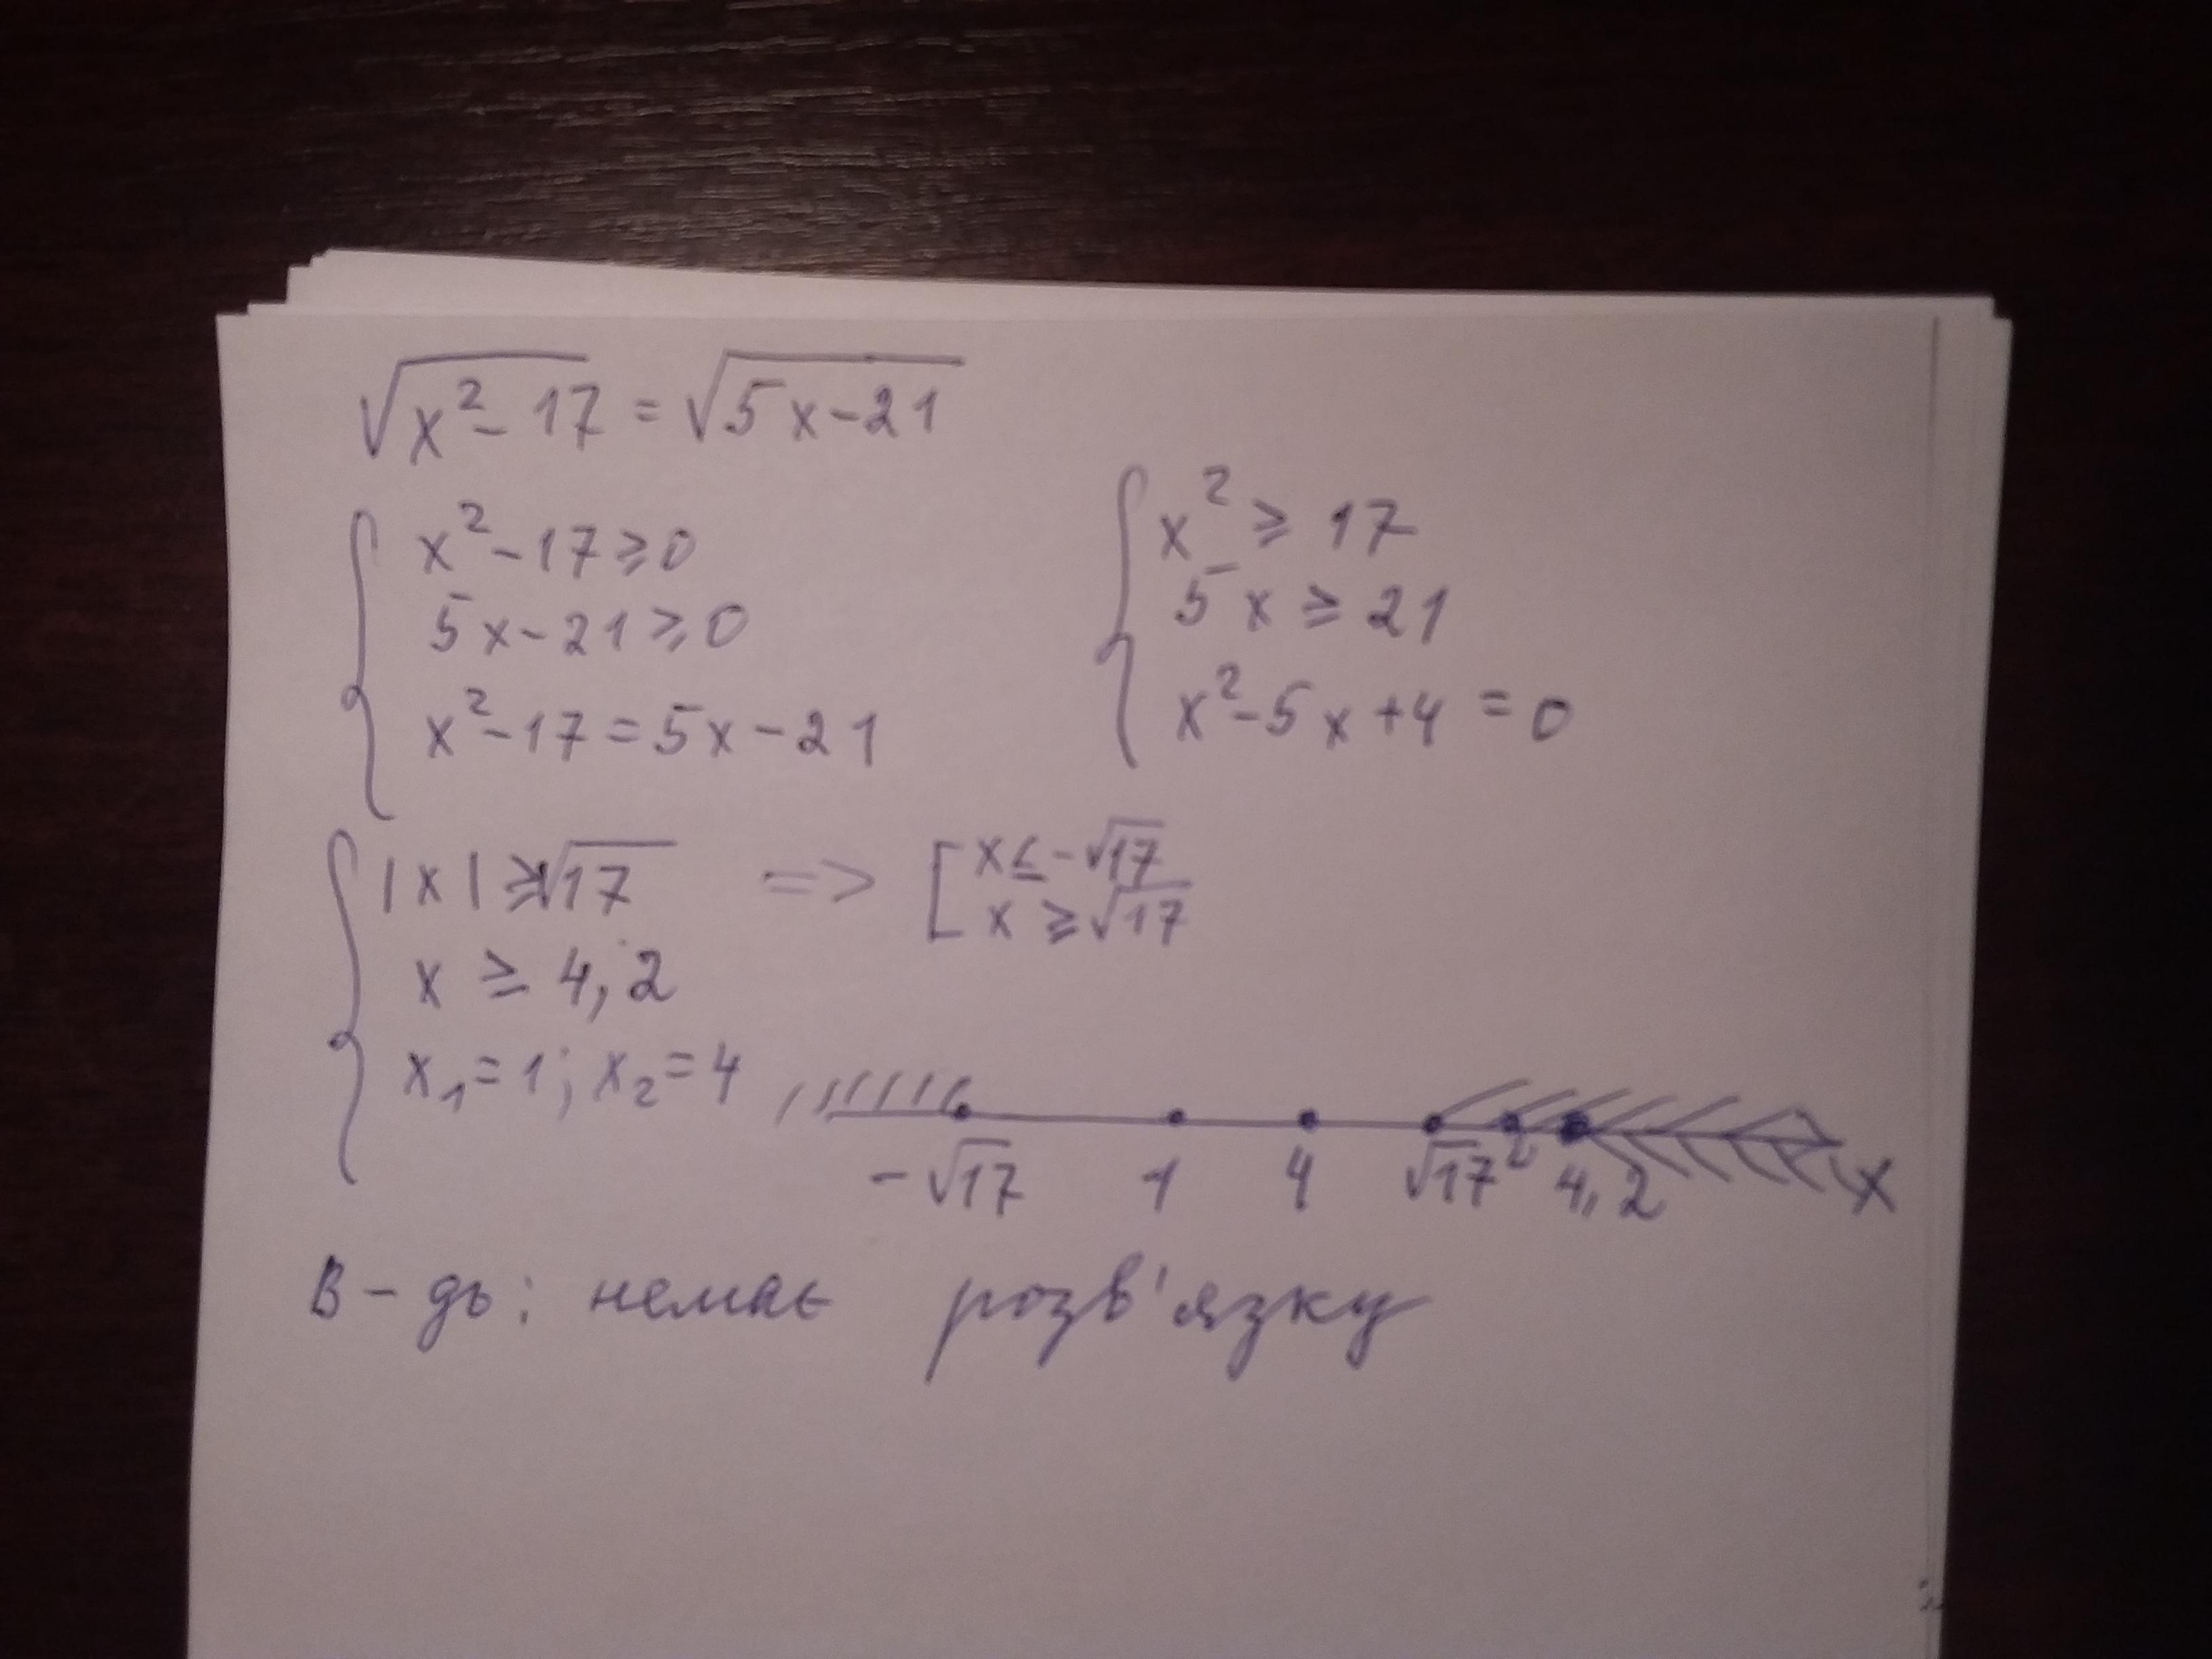 √(x² - 17) = √(5x - 21)
{ x² - 17 ≥ 0
5x - 21 ≥ 0
x² - 17 = 5x - 21
{ x² ≥ 17
5x ≥ 21
x² - 5x + 4 = 0
{ |x| ≥ √17 => [ x ≤ -√17
x ≥ √17
x ≥ 4,2
x₁ = 1; x₂ = 4
-√17 1 4 √17 4,2 x
В-дь: немає розв'язку